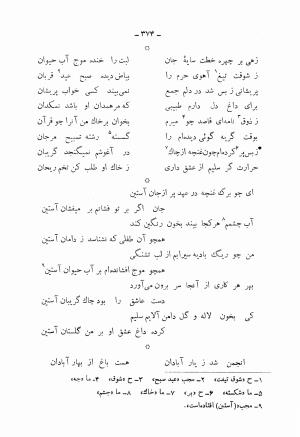 - ۳۷۴ -
زهی بر چهره خطت سایهٔ جان لبت را خنده موج آب حیوان
ز شوقت تیغ۱ آهوی حرم را بیاض دیده صبح عید۲ قربان
پریشانی ز بس شد در دلم جمع نمی‌بیند کسی خواب پریشان
برای داغ دل دارم طبیبی که مرهمدان او باشد نمکدان
ز ذوق۳ نامه‌ای قاصد چو۴ میرم بخوان برخاک من آنرا چو قرآن
بوقت گریه گوئی دیده‌ام را گسسته۵ رشته تسبیح مرجان
ز بس پر۶ کرده‌ام چون غنچه از چاک۷ در آغوشم نمیگنجد گریبان
حرارت گر سلیم از عشق داری ز خاک او طلب کن تخم ریحان
ای چو برگ غنچه در عهد پر از جان آستین
جان اگر بر تو فشانم بر میفشان آستین
آب چشمم۸ هرکجا بیند بخون رنگین کند
همچو آن طفلی که نشناسد ز دامان آستین
من چو ریگ بادیه سیرابم از لب تشنگی
همچو موج افشانده‌ام بر آب حیوان آستین۹
بهر هر کاری از آنجا سر برون می‌آورد
دست عاشق را بود چاک گریبان آستین
کی بخون لاله و گل دامن آلایم سلیم
کرده داغ عشق او بر من گلستان آستین
انجمن شد ز یار آبادان همت باغ از بهار آبادان
۱ــ ح «شوق تیغت» ۲ــ مجب «عید صبح» ۳ــ ح «شوق» ۴ــ ما «چه»
۵ــ ما «شکسته» ۶ــ ح «بر» ۷ــ ما «خاک» ۸ــ ما «چشم»
۹ــ مجب (آستین) افتاده‌است.